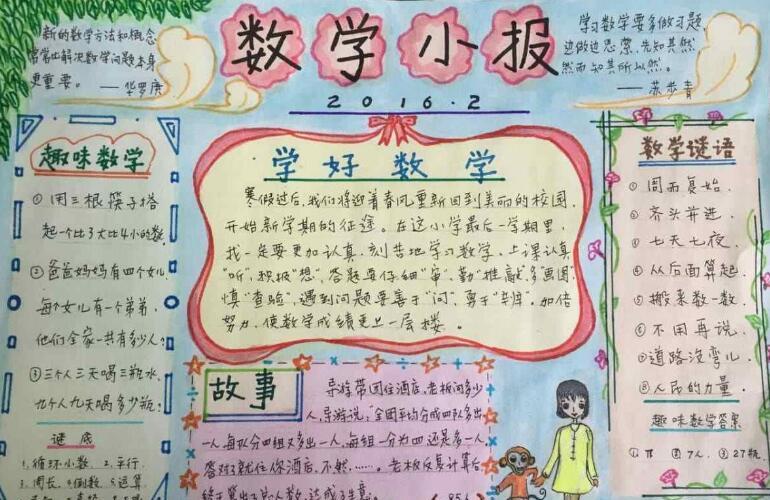 数学小报
2016.2
新的数学方法和概念
常常比解决数学问题本身
更重要。 ——华罗庚
学习数学要多做习题
边做边思索,先知其然
然而知其所以然。
——苏步青
趣味数学
①用三根筷子搭
起一个比3大比4小的数.
②爸爸妈妈有四个女儿
每个女儿有一个弟弟,
他们全家一共有多少人?
③三个人三天喝三瓶水
九个人九天喝多少瓶?
谜底
1.循环小数. 2.平行.
3.周长. 4.倒数. 5.运算
学好数学
寒假过后,我们将迎着春风重新回到美丽的校园
开始新学期的征途。在这小学最后一学期里,
我一定要更加认真、刻苦地学习数学。上课认真
"听",积极"想"、答题要仔细"审"、勤"推敲",多"画图",
慎"查验",遇到问题要善于"问"、勇于"辩"。加倍
努力,使数学成绩更上一层楼。
故事
导游带团住酒店,老板问多少
人,导游说:"全团平均分成四队多出
一人,每队分四组又多出一人,每组一分为四还是多一人.
答对了就住你酒店,不然……。老板反复计算后
85人
数学谜语
①周而复始.
②齐头并进.
③七天七夜.
④从后面算起.
⑤搬来数一数.
⑥不用再说.
⑦道路没弯儿.
⑧人民的力量.
趣味数学答案
①π ②7人. ③27瓶.